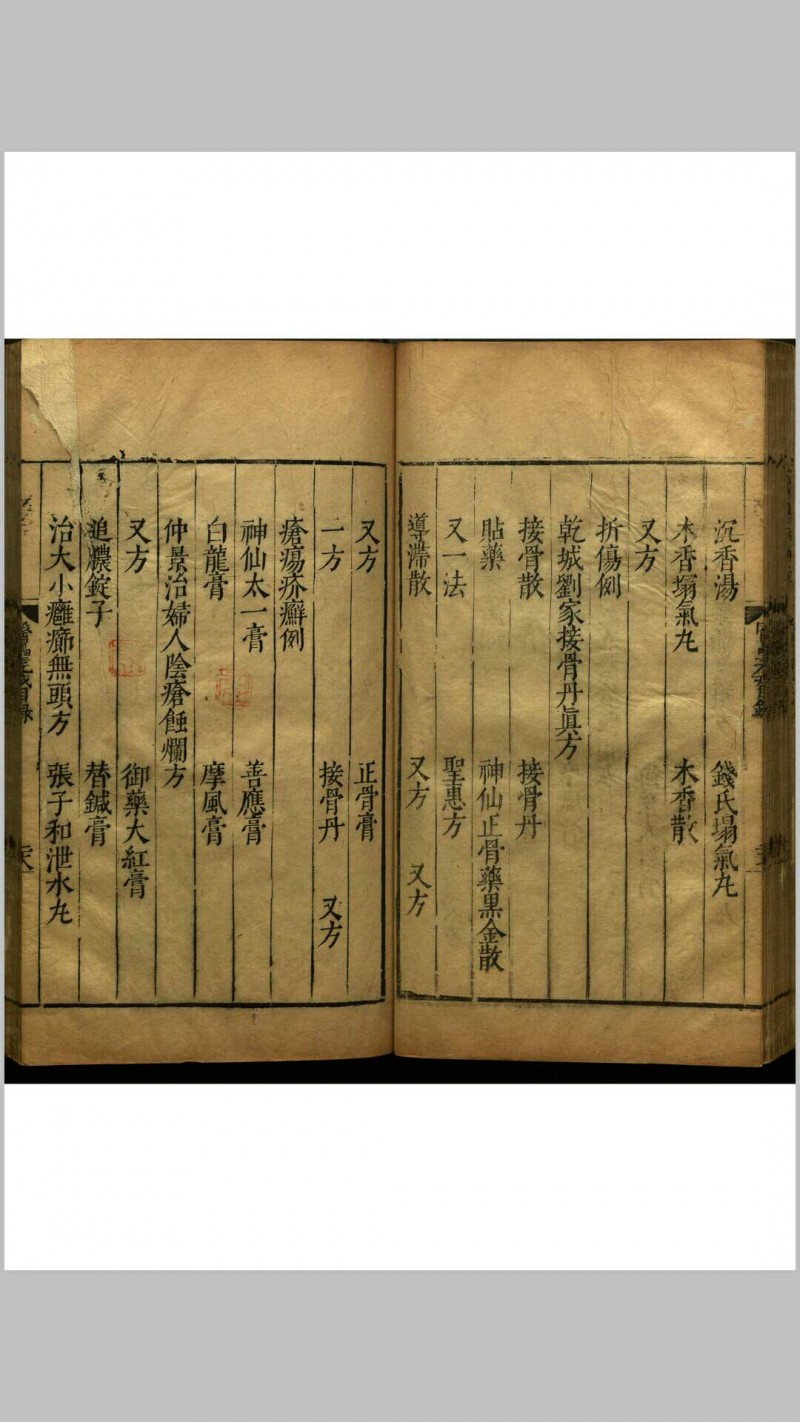 沉香湯 錢氏塌氣丸
木香塌氣丸 木香散
又方
折傷例
乾城劉家接骨丹眞方
接骨散 接骨丹
貼藥 神仙正骨藥黑金散
又一法 聖惠方
導滯散 又方 又方
又方 正骨膏
一方 接骨丹 又方
瘡瘍疥癬例
神仙太一膏 善應膏
白龍膏 摩風膏
仲景治婦人陰瘡蝕爛方
又方 御藥大紅膏
追膿錠子 替鍼膏
治大小癰癤無頭方 張子和泄水丸